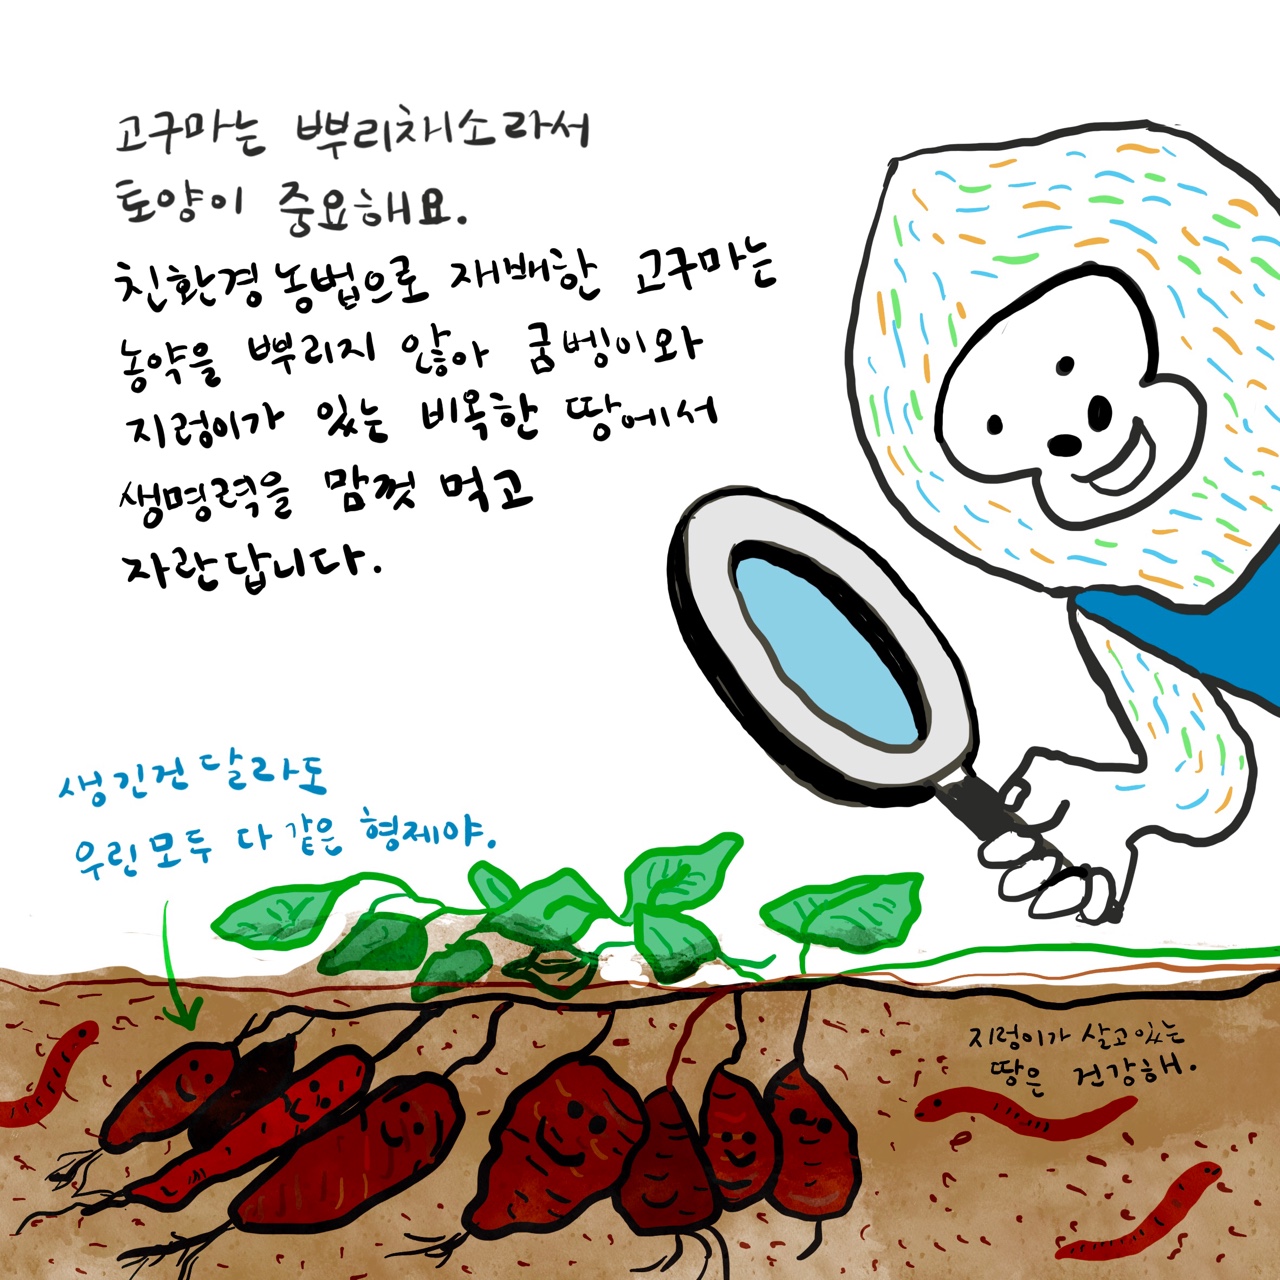 고구마는 뿌리채소라서
토양이 중요해요.
친환경 농법으로 재배한 고구마는
농약을 뿌리지 않아 굼벵이와
지렁이가 있는 비옥한 땅에서
생명력을 맘껏 먹고
자란답니다.
생긴건 달라도
우린 모두 다 같은 형제야.
지렁이가 살고있는
땅은 건강해.